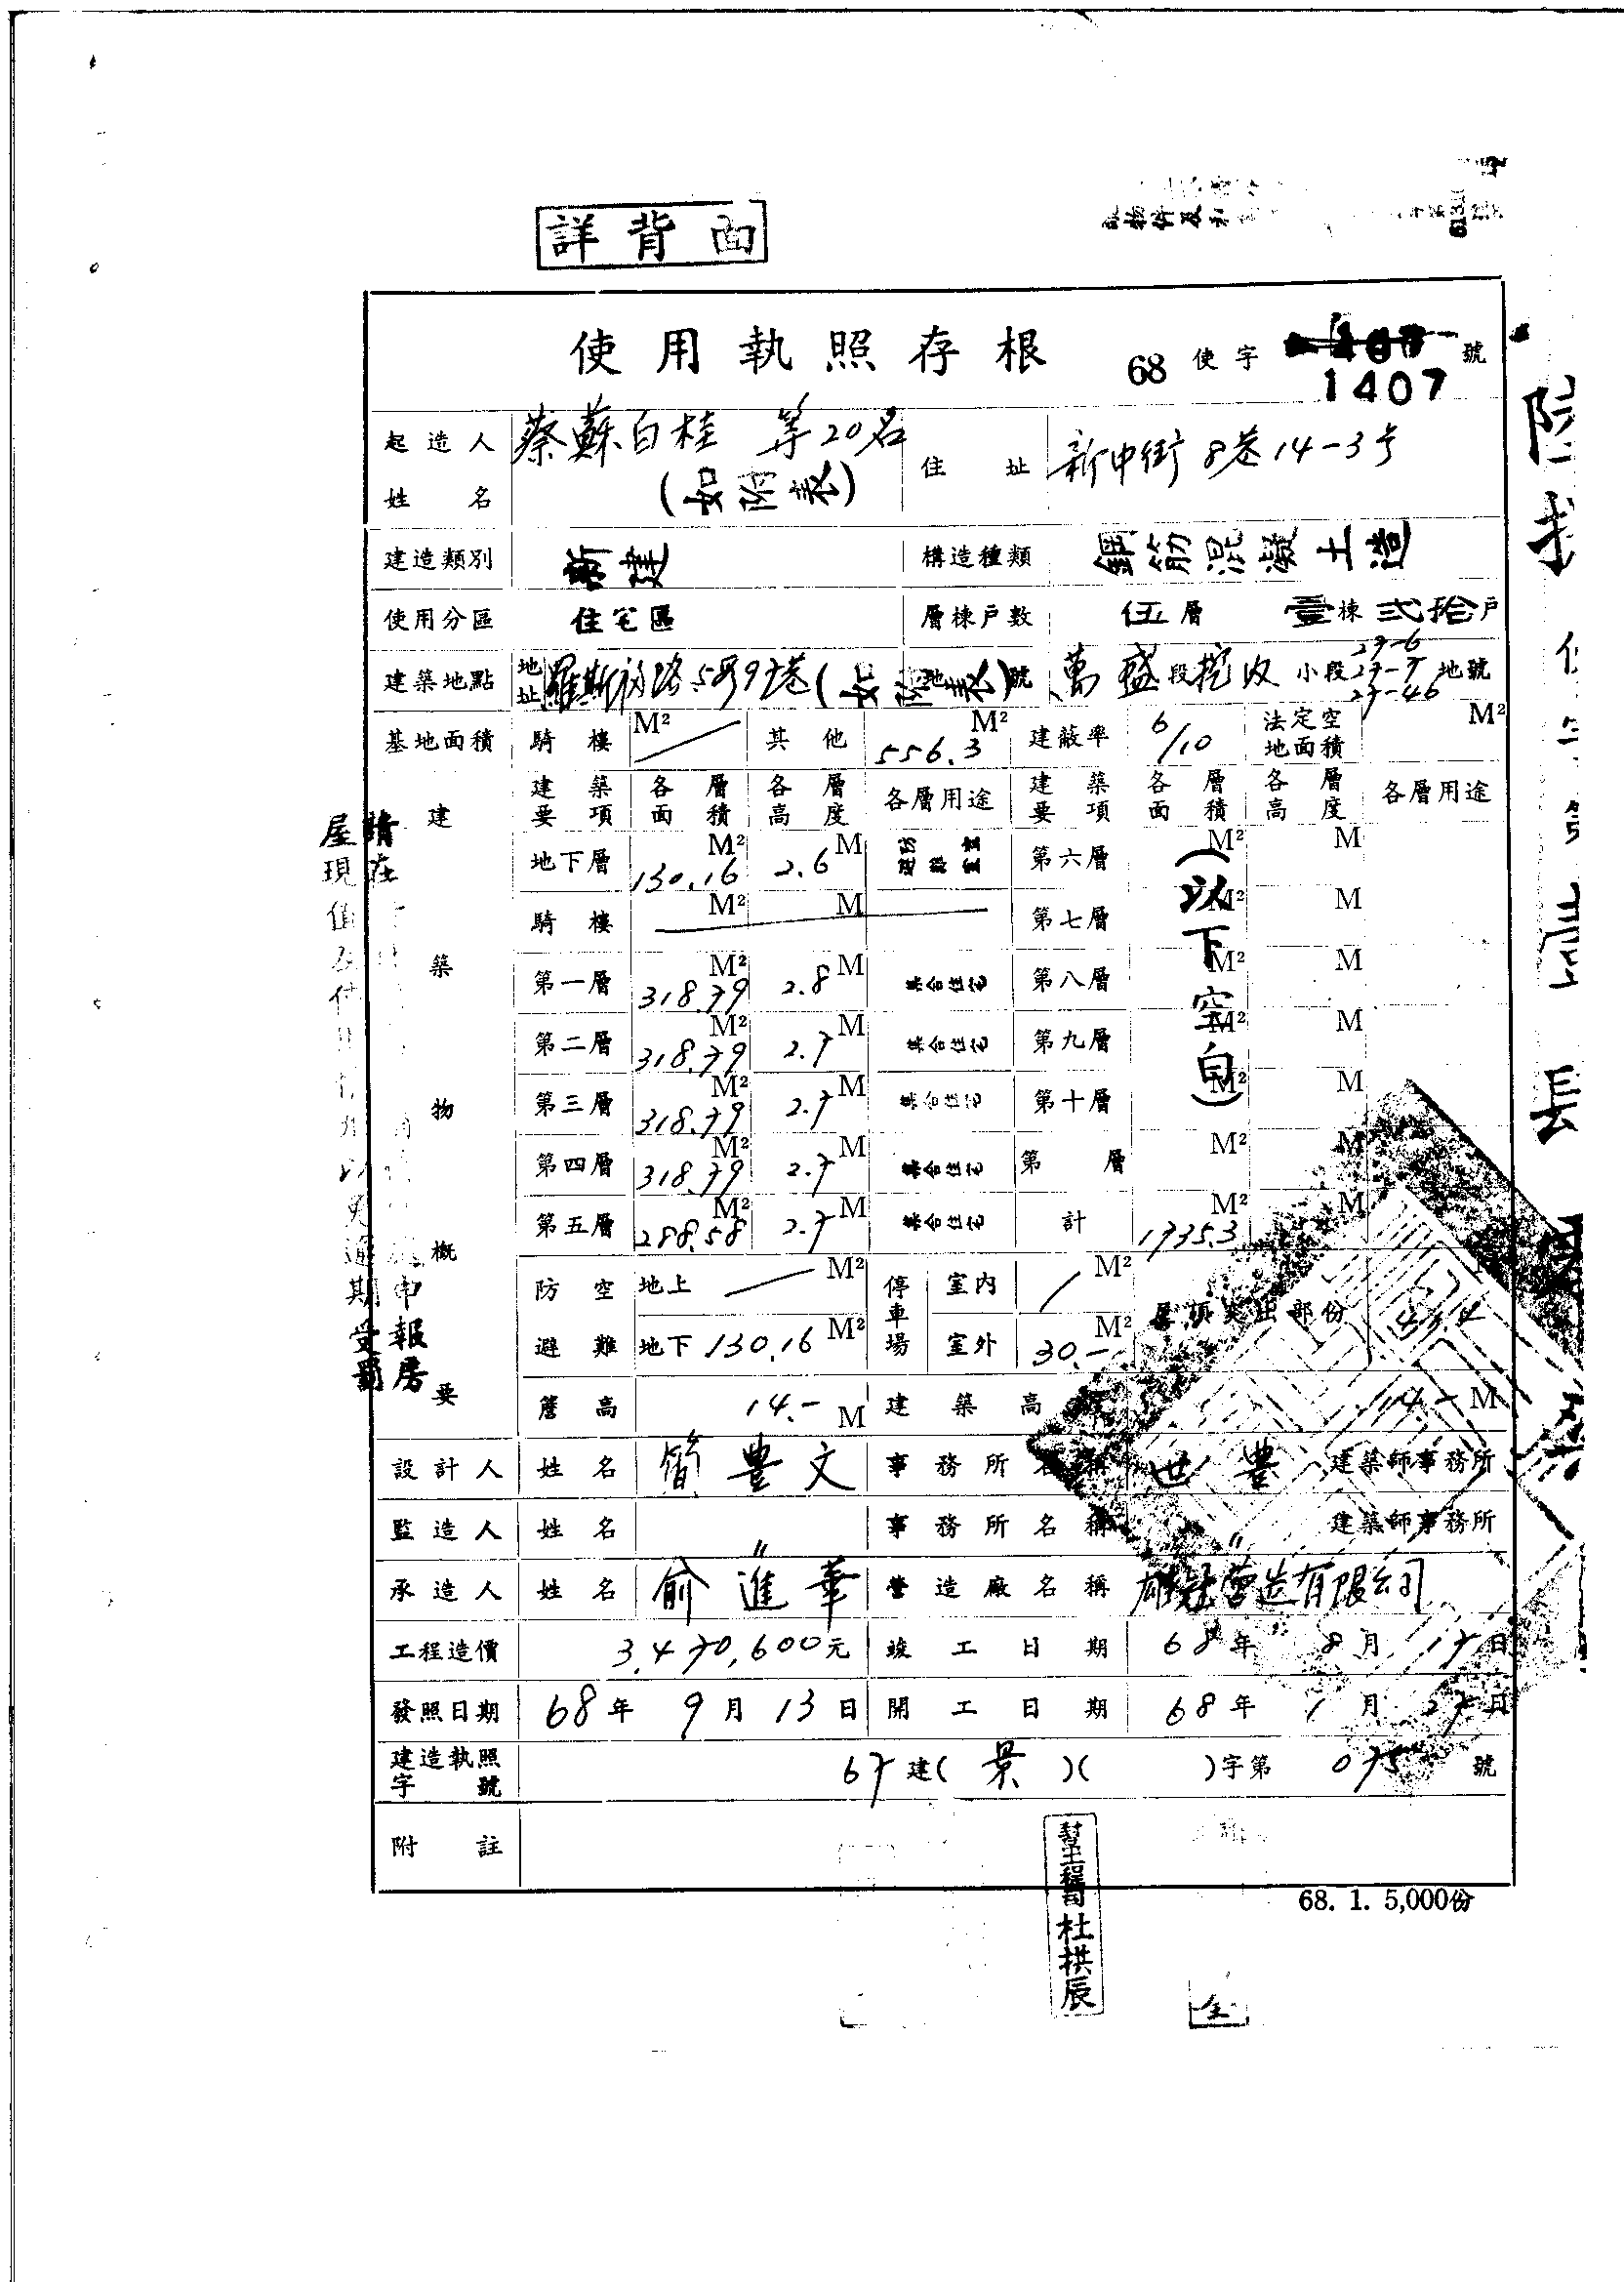 詳背面
使用執照存根 68 使字 號
1407
起造人姓名 蔡蘇白桂 等20名 (如附表) 住址 新中街8巷14-3号
建造類別 新建 構造種類 鋼筋混凝土造
使用分區 住宅區 層棟戶數 伍層 壹棟 弍拾戶
建築地點 地址 羅斯福路5段97巷(如附表) 地號 萬盛段 小段 地號
基地面積 騎樓 M² 其他 556.3 M² 建蔽率 6/10 法定空地面積 M²
建築物概要
建築要項 各層面積 各層高度 各層用途 建築要項 各層面積 各層高度 各層用途
地下層 130.16 M² 2.6 M 防空避難室 第六層 M² M
騎樓 M² M 第七層 M² M
第一層 318.79 M² 2.8 M 集合住宅 第八層 M² M
第二層 318.79 M² 2.7 M 集合住宅 第九層 M² M
第三層 318.79 M² 2.7 M 集合住宅 第十層 M² M
第四層 318.79 M² 2.7 M 集合住宅 第 層 M² M
第五層 288.58 M² 2.7 M 集合住宅 計 1735.3 M² M
(以下空白)
防空避難 地上 M² 停車場 室內 M² 屋頂突出部份 43.4
地下 130.16 M² 室外 30.- M²
簷高 14.- M 建築高 14.- M
設計人 姓名 簡豊文 事務所名稱 世豊 建築師事務所
監造人 姓名 〃 事務所名稱 〃 建築師事務所
承造人 姓名 俞進華 營造廠名稱 營造有限公司
工程造價 3,470,600元 竣工日期 68年 8月 17日
發照日期 68年 9月 13日 開工日期 68年 1月 27日
建造執照字號 67建(景)( )字第 075 號
附註
68. 1. 5,000份
杜拱辰